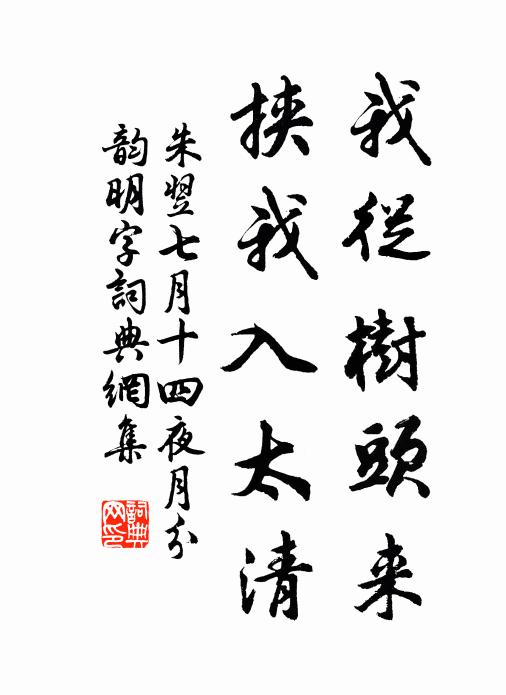 我從樹頭来
挾我入太清
朱翌七月十四夜月分
韵明字詞典網集
詞典
网印